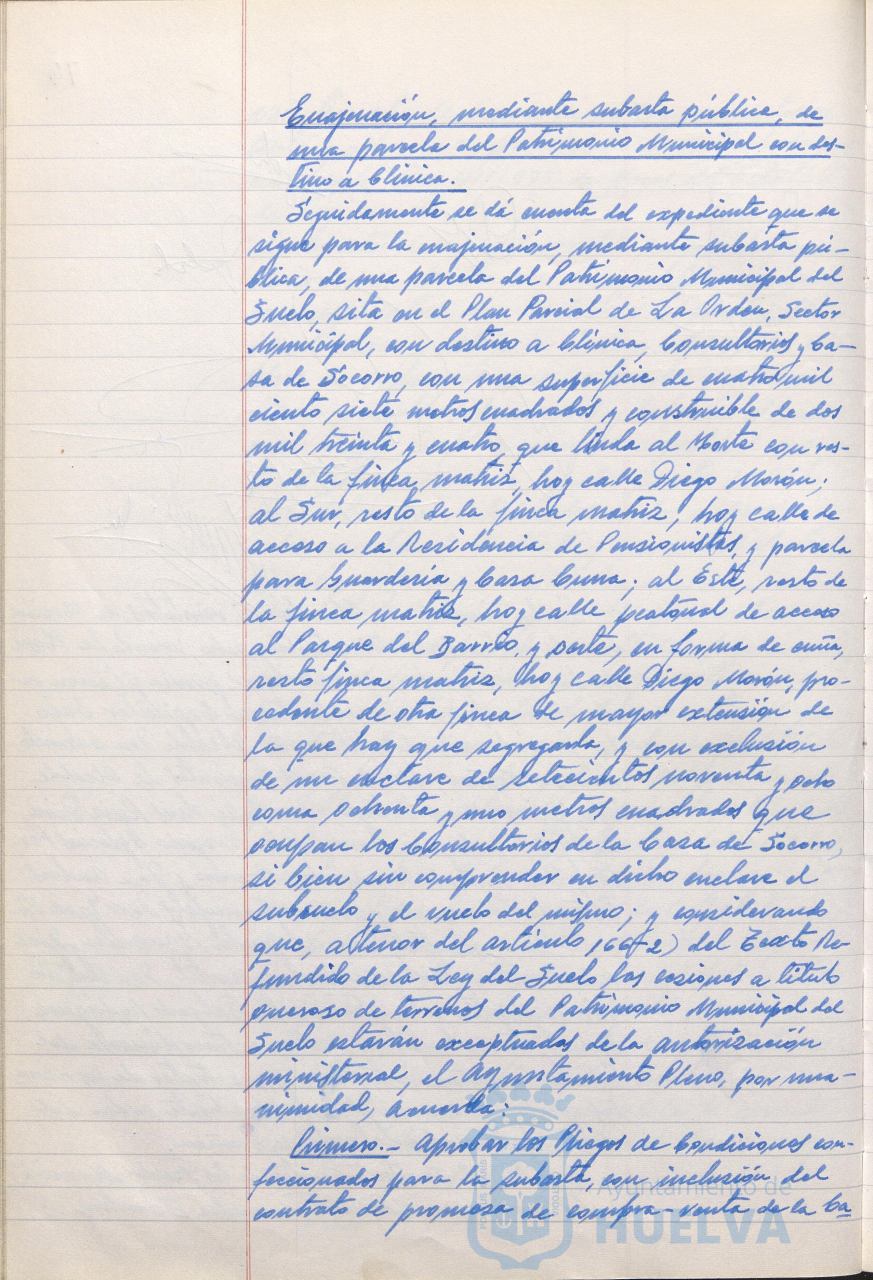 Enajenación, mediante subasta pública, de
una parcela del Patrimonio Municipal con des-
tino a Clínica.
Seguidamente se dá cuenta del expediente que se
sigue para la enajenación, mediante subasta pú-
blica, de una parcela del Patrimonio Municipal del
Suelo, sita en el Plan Parcial de La Orden, Sector
Municipal, con destino a Clínica, Consultorios y Ca-
sa de Socorro, con una superficie de cuatro mil
ciento siete metros cuadrados y construible de dos
mil treinta y cuatro, que linda al Norte con res-
to de la finca matriz, hoy calle Diego Morón;
al Sur, resto de la finca matriz, hoy calle de
acceso a la Residencia de Pensionistas, y parcela
para Guardería y Casa Cuna; al Este, resto de
la finca matriz, hoy calle peatonal de acceso
al Parque del Barrio, y oeste, en forma de cuña,
resto finca matriz, hoy calle Diego Morón, pro-
cedente de otra finca de mayor extensión de
la que hay que segregarla, y con exclusión
de un enclave de setecientos noventa y ocho
coma ochenta y uno metros cuadrados que
ocupan los Consultorios de la Casa de Socorro,
si bien sin comprender en dicho enclave el
subsuelo y el vuelo del mismo; y considerando
que, a tenor del artículo 166-2) del Texto Re-
fundido de la Ley del Suelo las cesiones a título
oneroso de terrenos del Patrimonio Municipal del
Suelo estarán exceptuadas de la autorización
ministerial, el Ayuntamiento Pleno, por una-
nimidad, acuerda:
Primero.- Aprobar los Pliegos de Condiciones con-
feccionados para la subasta, con inclusión del
contrato de promesa de compra-venta de la Ca
Ayuntamiento de
HUELVA